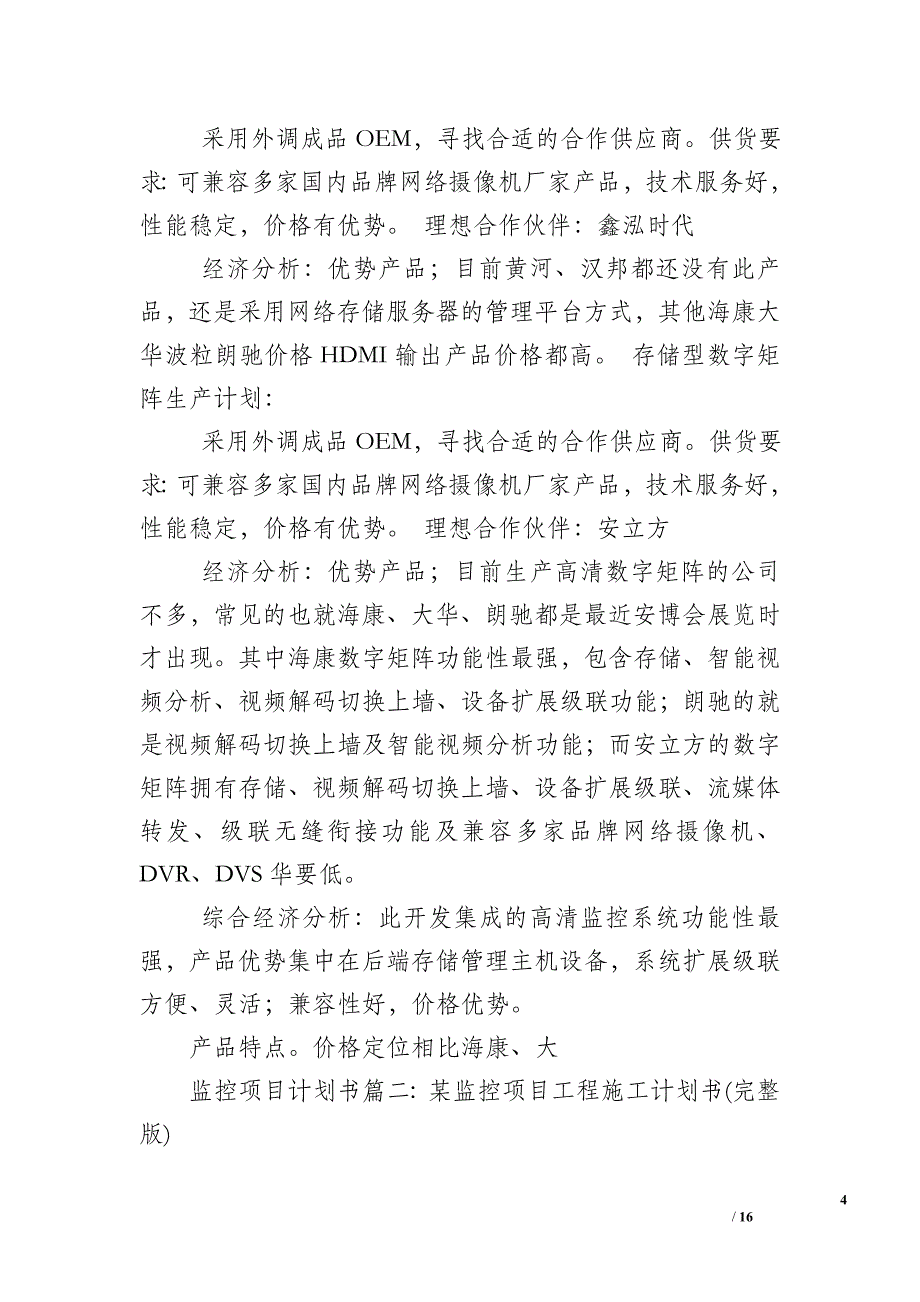 采用外调成品 OEM，寻找合适的合作供应商。供货要
求：可兼容多家国内品牌网络摄像机厂家产品，技术服务好，
性能稳定，价格有优势。 理想合作伙伴：鑫泓时代
经济分析：优势产品；目前黄河、汉邦都还没有此产
品，还是采用网络存储服务器的管理平台方式，其他海康大
华波粒朗驰价格 HDMI 输出产品价格都高。 存储型数字矩
阵生产计划：
采用外调成品 OEM，寻找合适的合作供应商。供货要
求：可兼容多家国内品牌网络摄像机厂家产品，技术服务好，
性能稳定，价格有优势。 理想合作伙伴：安立方
经济分析：优势产品；目前生产高清数字矩阵的公司
不多，常见的也就海康、大华、朗驰都是最近安博会展览时
才出现。其中海康数字矩阵功能性最强，包含存储、智能视
频分析、视频解码切换上墙、设备扩展级联功能；朗驰的就
是视频解码切换上墙及智能视频分析功能；而安立方的数字
矩阵拥有存储、视频解码切换上墙、设备扩展级联、流媒体
转发、级联无缝衔接功能及兼容多家品牌网络摄像机、
DVR、DVS 华要低。
综合经济分析：此开发集成的高清监控系统功能性最
强，产品优势集中在后端存储管理主机设备，系统扩展级联
方便、灵活；兼容性好，价格优势。
产品特点。价格定位相比海康、大
监控项目计划书篇二：某监控项目工程施工计划书(完整
版)
4
/ 16